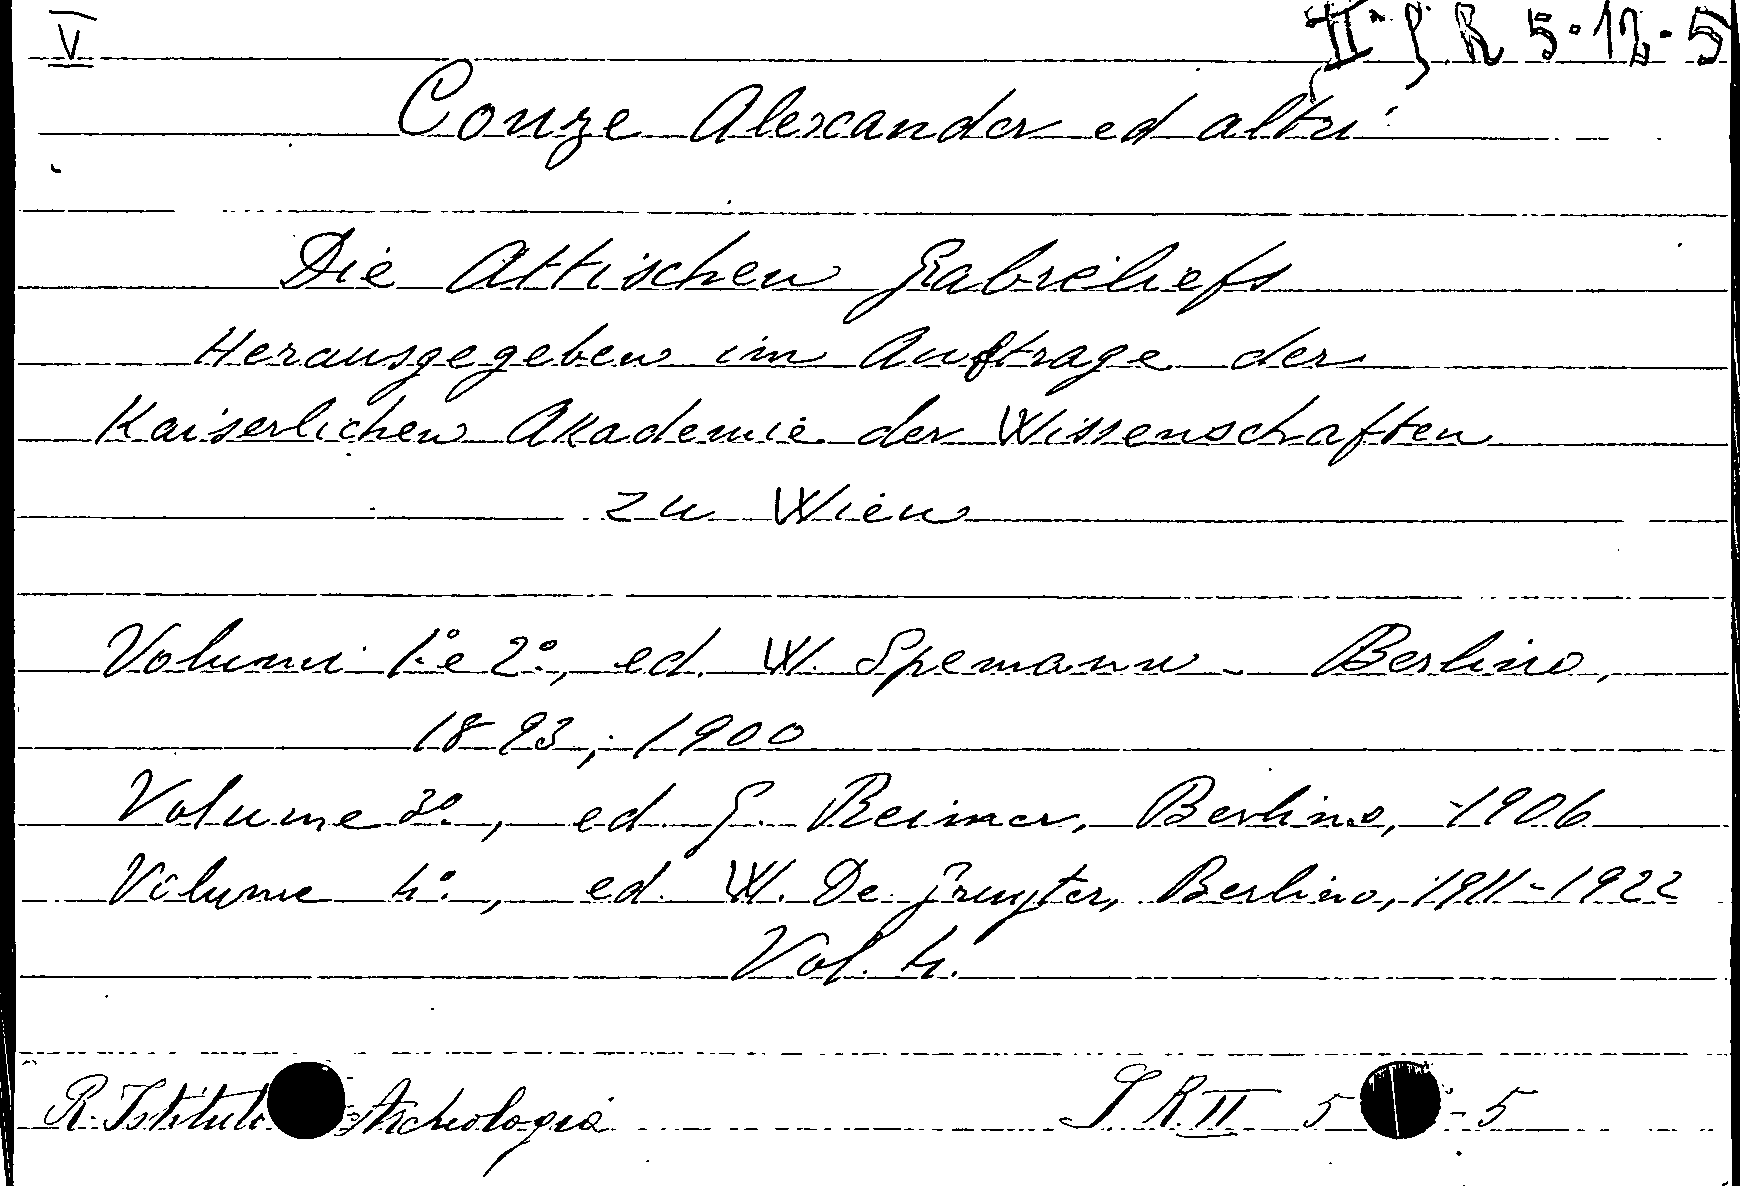 V
II. G R 5.12.5
Conze Alexander ed altri
Die Attischen Grabreliefs
Herausgegeben im Auftrage der
Kaiserlichen Akademie der Wissenschaften
zu Wien
Volumi 1.° e 2.°, ed. W. Spemann - Berlino,
1893, - 1900
Volume 3°., ed G. Reimer, Berlino, 1906
Volume 4°., ed. W. De Gruyter, Berlino, 1911-1922
Vol. 4.
R. Istituto Archeologia
G R II 5 - 5